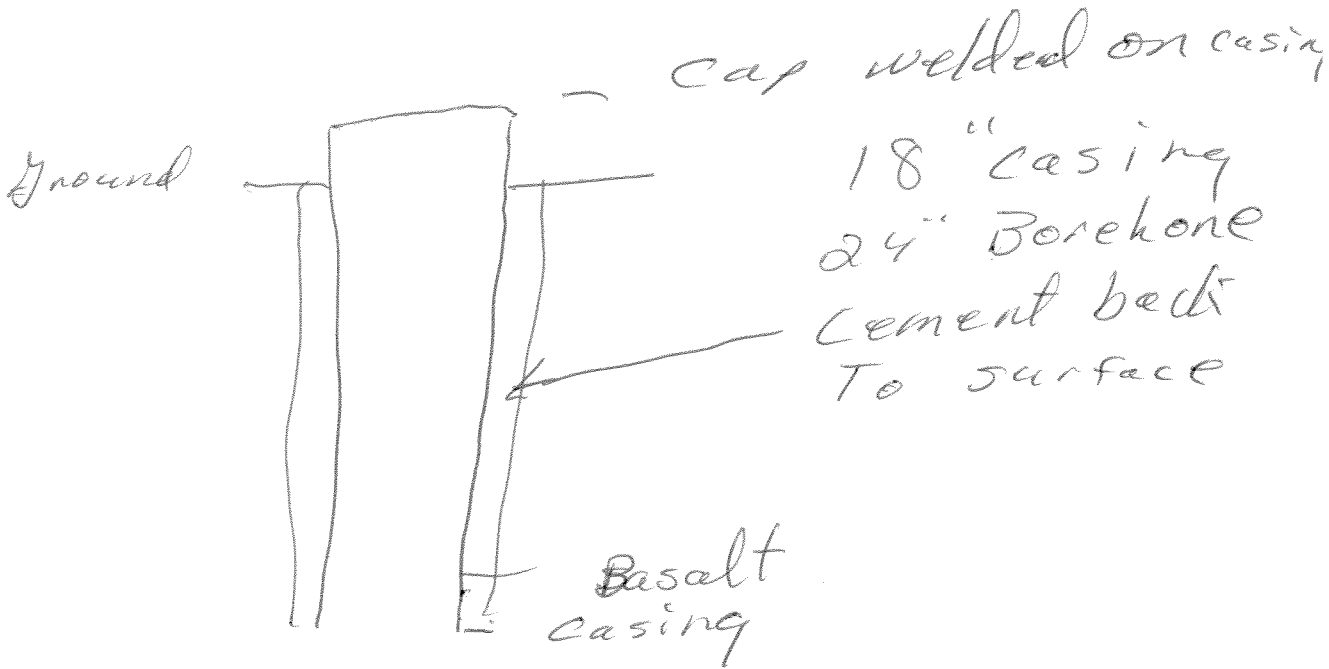 Cap welded on casing
Ground
18" casing
24" Borehone
Cement back
To surface
Basalt
casing